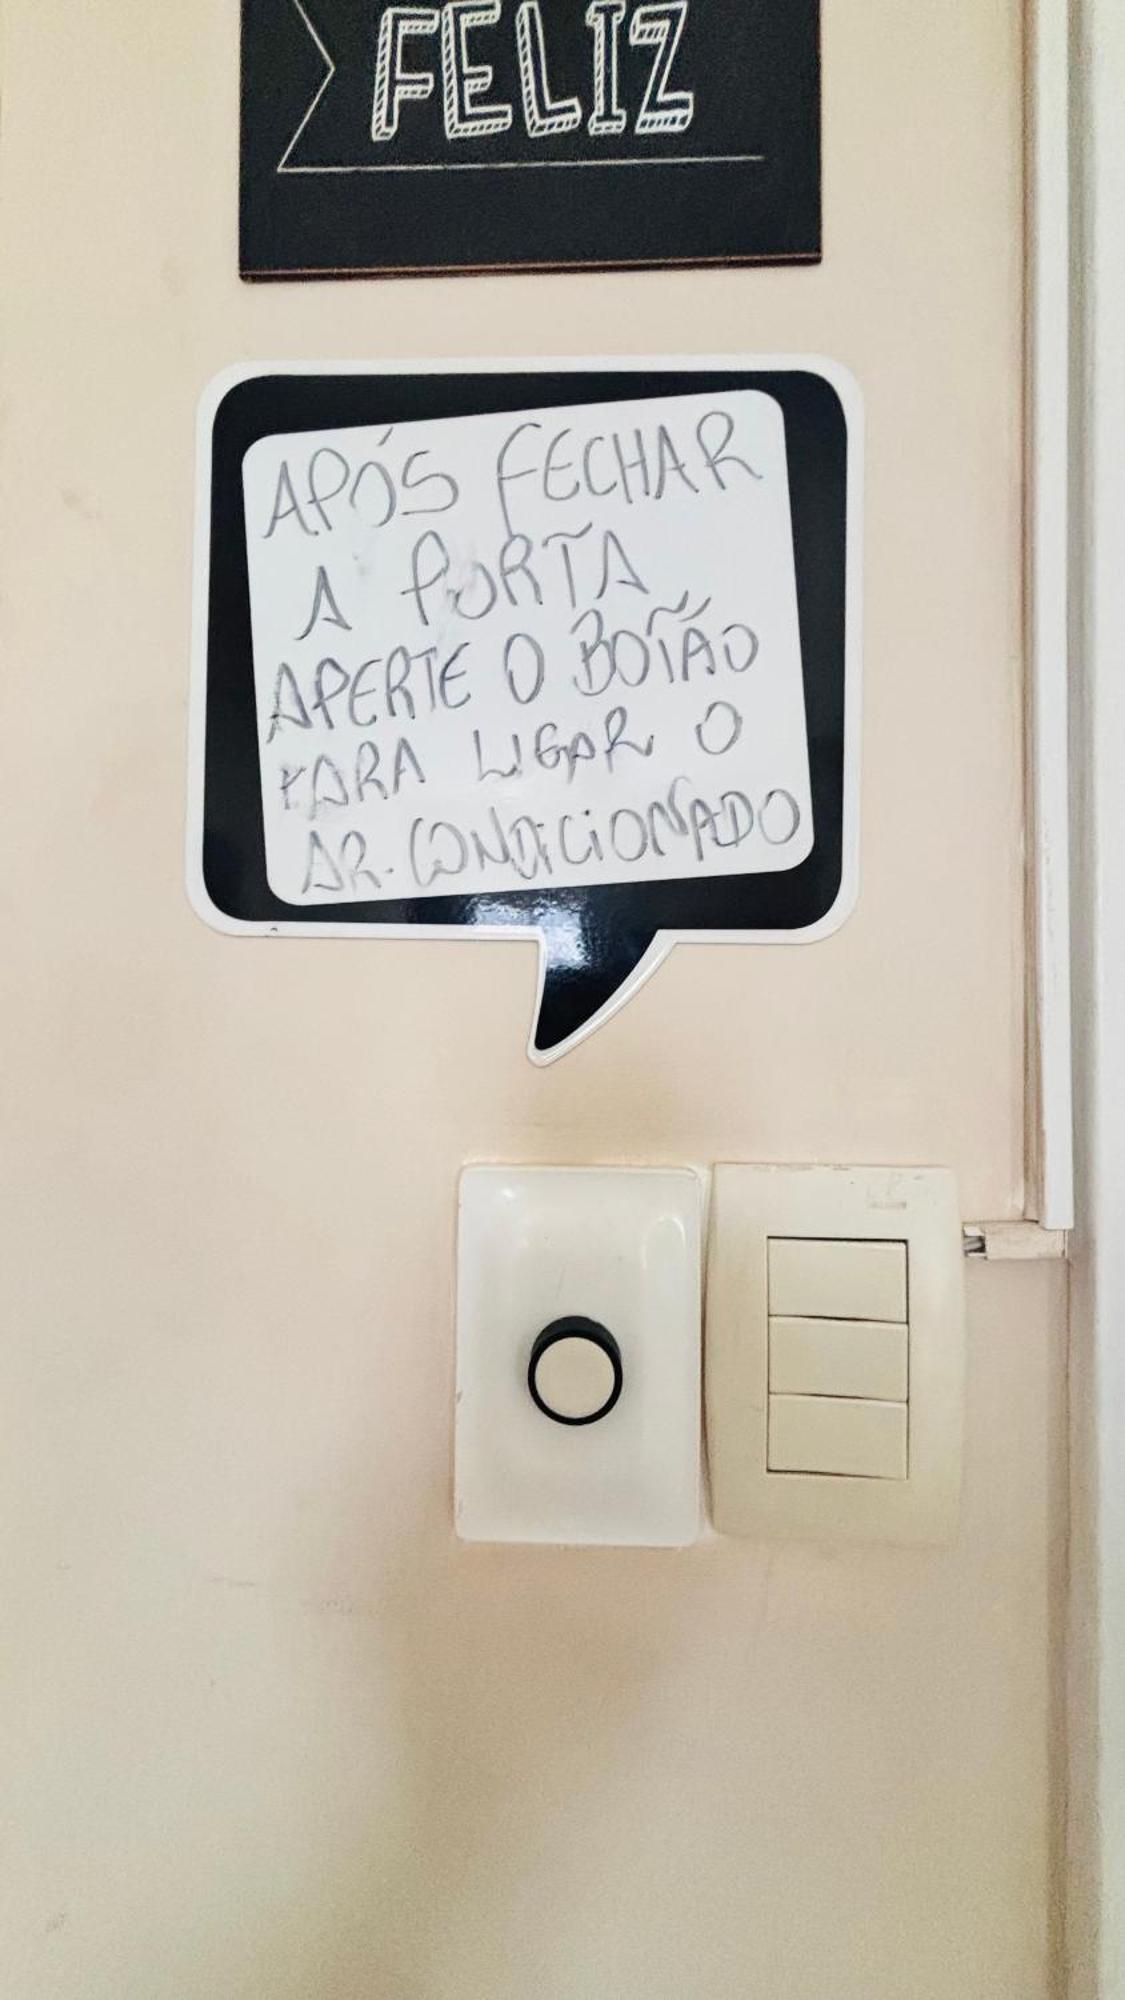 FELIZ
APÓS FECHAR
A PORTA
APERTE O BOTÃO
PARA LIGAR O
AR-CONDICIONADO